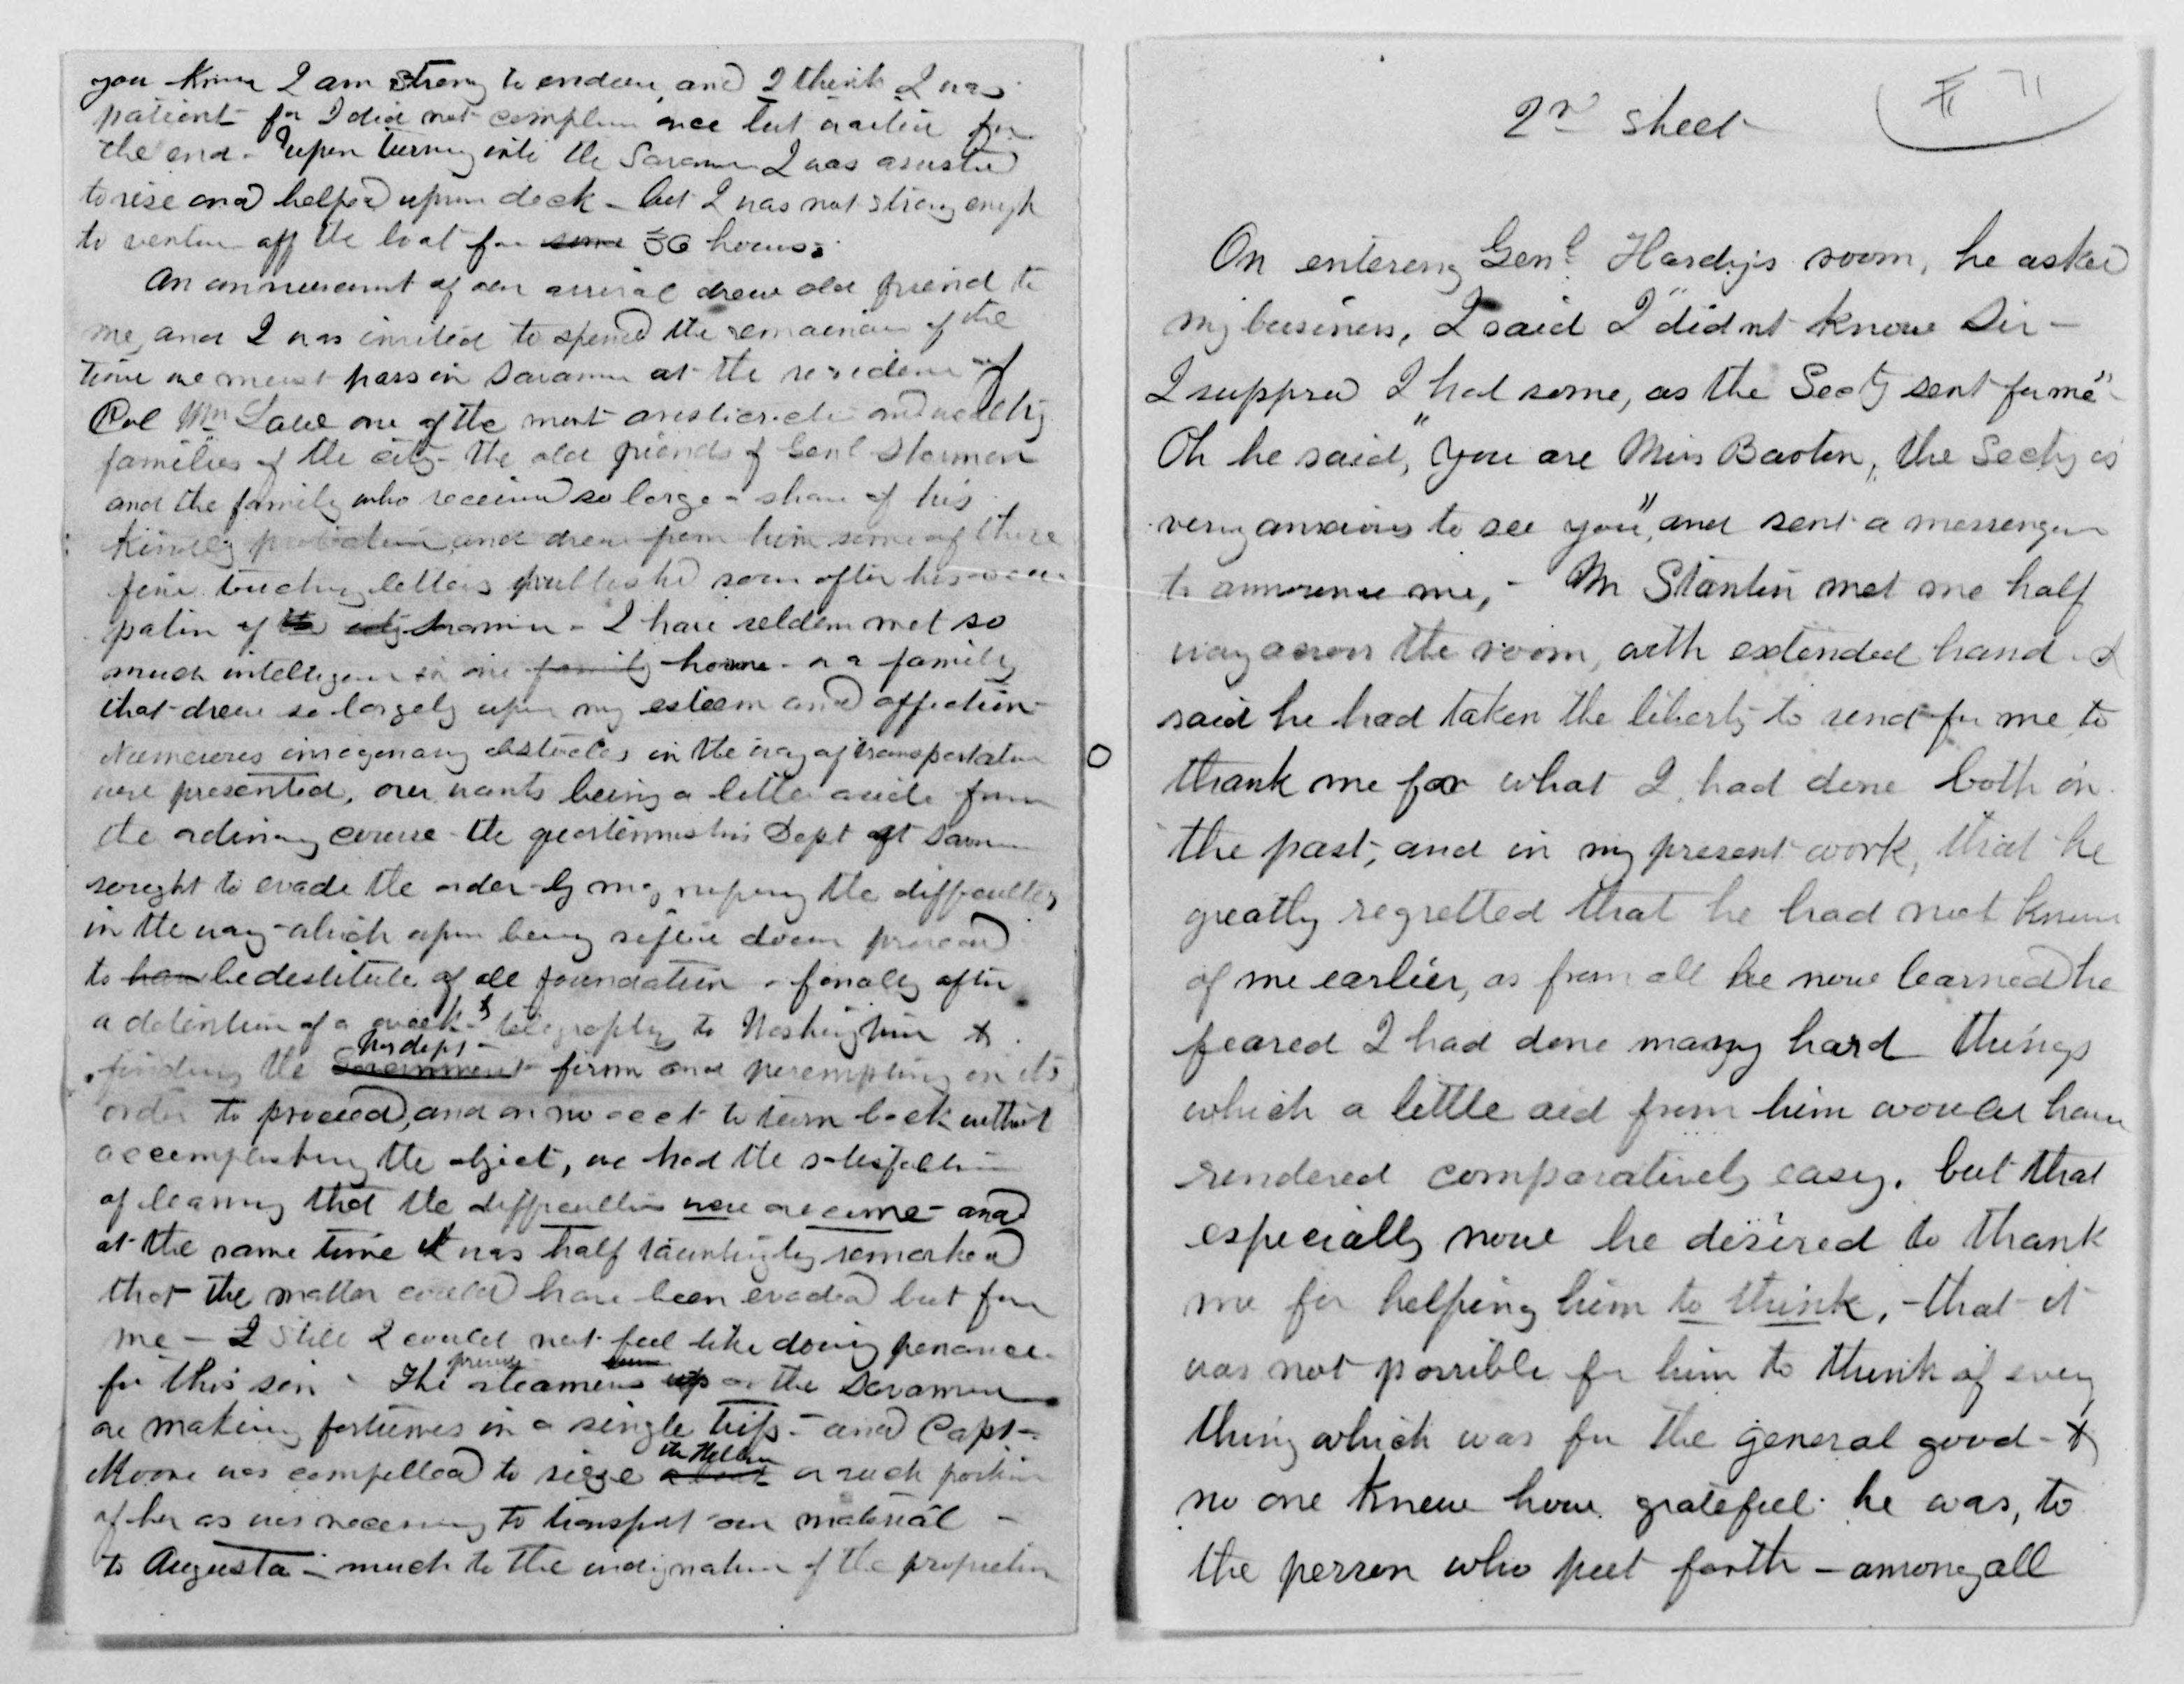 you know I am strong to endure, and I think I was
patient for I did not complain once but waited for
the end - upon turning into the Savannah I was assisted
to rise and helped upon deck - but I was not strong enough
to venture off the boat for some 36 hours.
An announcement of our arrival drew old friend to
me, and I was invited to spend the remainder of the
time we must pass in Savannah at the residence of
Col Wm one of the most aristocratic and wealthy
families of the city - the old friends of Genl Sherman
and the family who received so large a share of his
kindly and drew from him some of those
fine touching letters published soon after his occu-
pation of the city Savannah - I have seldom met so
much intelligence in one family house - or a family
that drew so largely upon my esteem and affection -
Numerous imaginary obstacles in the way of transportation
were presented, our wants being a little aside from
the ordinary course - the quartermasters Dept at Savannah
sought to evade the order by the difficulties
in the way - which upon being down proved
to have be destitute of all foundation - finally after
a detention of a week & telegraphing to Washington &
finding the Government War dept - firm and peremptory in its
order to proceed, and on no acct to turn back without
accomplishing the object, we had the satisfaction
of learning that the difficulties were overcome - and
at the same time it was half tauntingly remarked
that the matter could have been evaded but for
me - I still I could not feel like doing penance
for this sin - The steamers up on the Savannah
are making fortunes in a single trip - and Capt -
Moore was compelled to seize a boat or such portion
of her as was necessary to transport our material -
to Augusta - much to the indignation of the proprietor
2nd sheet
II 71
On entering Genl Hardys room, he asked
my business, I said I "didnt know Sir -
I supposed I had some, as the Secty sent for me" -
Oh he said, "you are Miss Barton, the Secty is
very anxious to see you", and sent a messenger
to announce me, - Mr Stanton met me half
way across the room, with extended hand &
said he had taken the liberty to send for me to
thank me for what I had done both in
the past, and in my present work, that he
greatly regretted that he had not known
of me earlier, as from all he now learned he
feared I had done many hard things
which a little aid from him would have
rendered comparatively easy. but that
especially now he desired to thank
me for helping him to think, - that it
was not possible for him to think of every
thing which was for the general good - &
no one knew how grateful he was, to
the person who put forth - among all